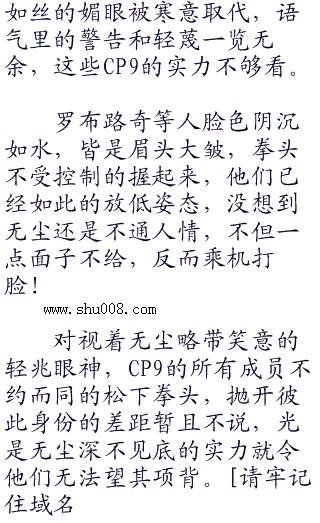 如丝的媚眼被寒意取代，语
气里的警告和轻蔑一览无
余，这些CP9的实力不够看。
罗布路奇等人脸色阴沉
如水，皆是眉头大皱，拳头
不受控制的握起来，他们已
经如此的放低姿态，没想到
无尘还是不通人情，不但一
点面子不给，反而乘机打
脸！
www.shu008.com
对视着无尘略带笑意的
轻兆眼神，CP9的所有成员不
约而同的松下拳头，抛开彼
此身份的差距暂且不说，光
是无尘深不见底的实力就令
他们无法望其项背。[请牢记
住域名